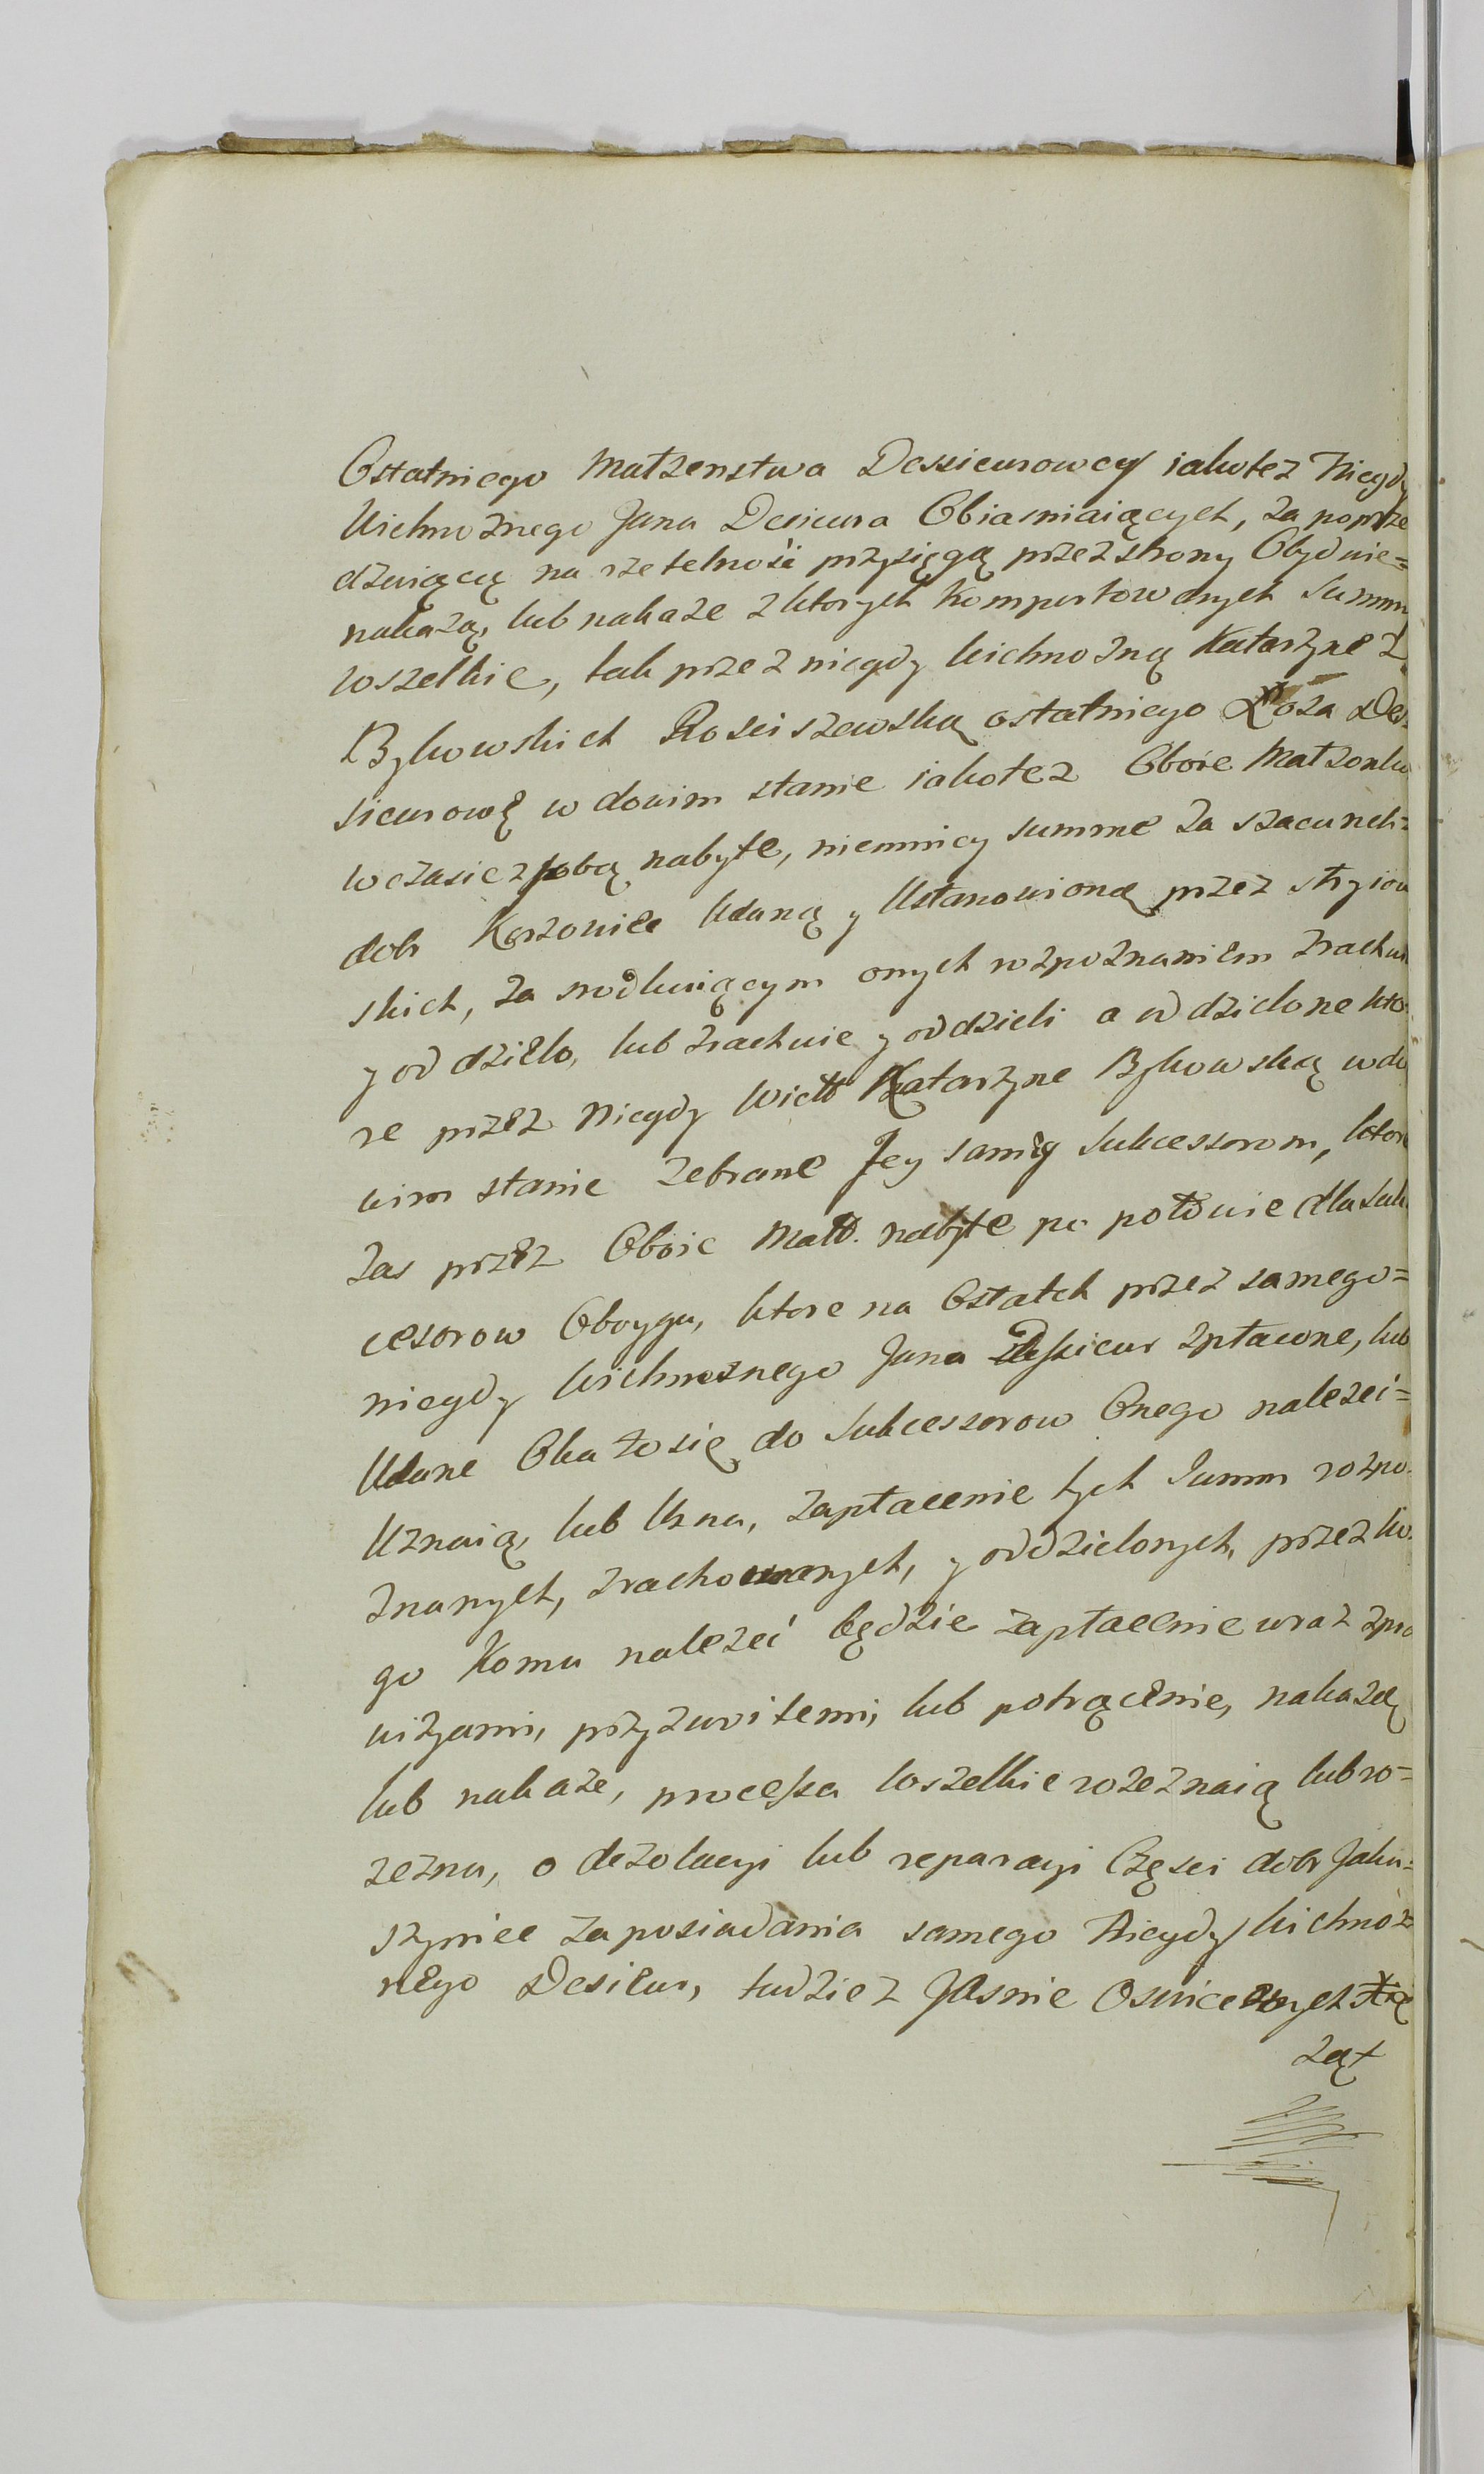 Ostatniego Małzenstwa Dessieurowey iakotez Niegdy
Wielmoznego Jana Desieura Obiasniaiących, za poprze
dzaiącą na rzetelność przysięgą przez strony Obydwie=
nakażą, lub nakaze z ktorych komportowanych Summy
wszelkie, tak przez niegdy Wielmozną Katarzynę z
Bykowskich Rosciszewską ostatniego Łoza Des
sieurowę w dowim stanie iakotez Oboie Małzonkow
w czasie z sobą nabyte, niemniey summe za szacunek=
dobr Karzowiec Udaną y Ustanowioną przez stryiow
skich, za srodkuiącym onych rozpoznaniem zrachuią
y oddzielą, lub zrachuie y oddzieli a oddzielone kto
re przez Niegdy Wielb Katarzyne Bykowską wdo
wim stanie zebrane Jey samey Sukcessorom, ktore
zas przez Oboie Małż. nabyte po połowie dla suk
cesorow Oboyga, ktore na Ostatek przez samego=
niegdy Wielmoznego Jana Desieur spłacone, lub
Udane Okaże się do Sukcessorow Onego nalezeć=
Uznaią, lub Uzna, zapłacenie tych Summ rozpo
znanych, zrachowanych, y oddzielonych, przez ko
go komu nalezeć będzie zapłacenie wraz z pro
wizyami, przyzwoitemi, lub potrącenie, nakazą
lub nakaze, processa wszelkie rozeznaią lub ro=
zezna, o dezolacyi lub reparacyi Częsci dobr Jaku=
szyniec za posiadania samego Niegdy Wielmoz
nego Desieur, tudziez Jasnie Oswieconych Xią
ząt